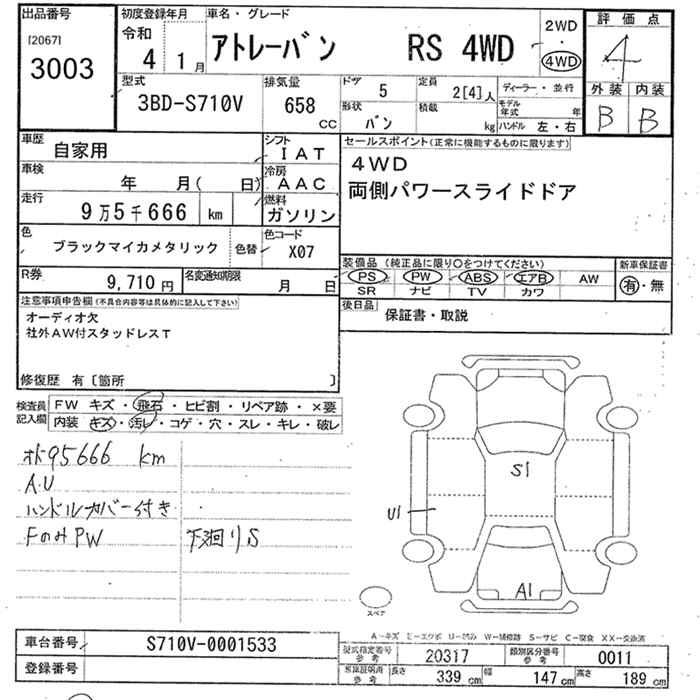 出品番号
[2067]
3003
初度登録年月
令和
4 1月
車名・グレード
アトレーバン RS 4WD
2WD
・
4WD
評価点
4
外装 内装
B B
型式
3BD-S710V
排気量
658
CC
ドア
5
定員
2[4]人
ディーラー・並行
形状
バン
積載
kg
モデル年式
年
ハンドル 左・右
車歴
自家用
シフト
IAT
車検
年 月( 日)
冷房
AAC
走行
9万5千666 km
燃料
ガソリン
色
ブラックマイカメタリック
色替
色コード
X07
R券
9,710円
名変通知期限
月 日
セールスポイント(正常に機能するものに限ります)
4WD
両側パワースライドドア
装備品 (純正品に限り○をつけてください)
PS PW ABS エアB AW
SR ナビ TV カワ
新車保証書
有・無
後日品
保証書・取説
注意事項申告欄(不具合内容等は具体的に記入して下さい)
オーディオ欠
社外AW付スタッドレスT
修復歴 有〔箇所 〕
検査員記入欄
FW キズ・飛石・ヒビ割・リペア跡・×要
内装 キズ・汚レ・コゲ・穴・スレ・キレ・破レ
オド95666 km
A.U
ハンドルカバー付き
FのみPW
下廻りS
S1
U1
A1
スペア
A-キズ E-エクボ U-凹み W-補修跡 S-サビ C-腐食 XX-交換済
車台番号
S710V-0001533
登録番号
型式指定番号
参考
20317
類別区分番号
参考
0011
参考
長さ
339 cm
幅
147 cm
高さ
189 cm